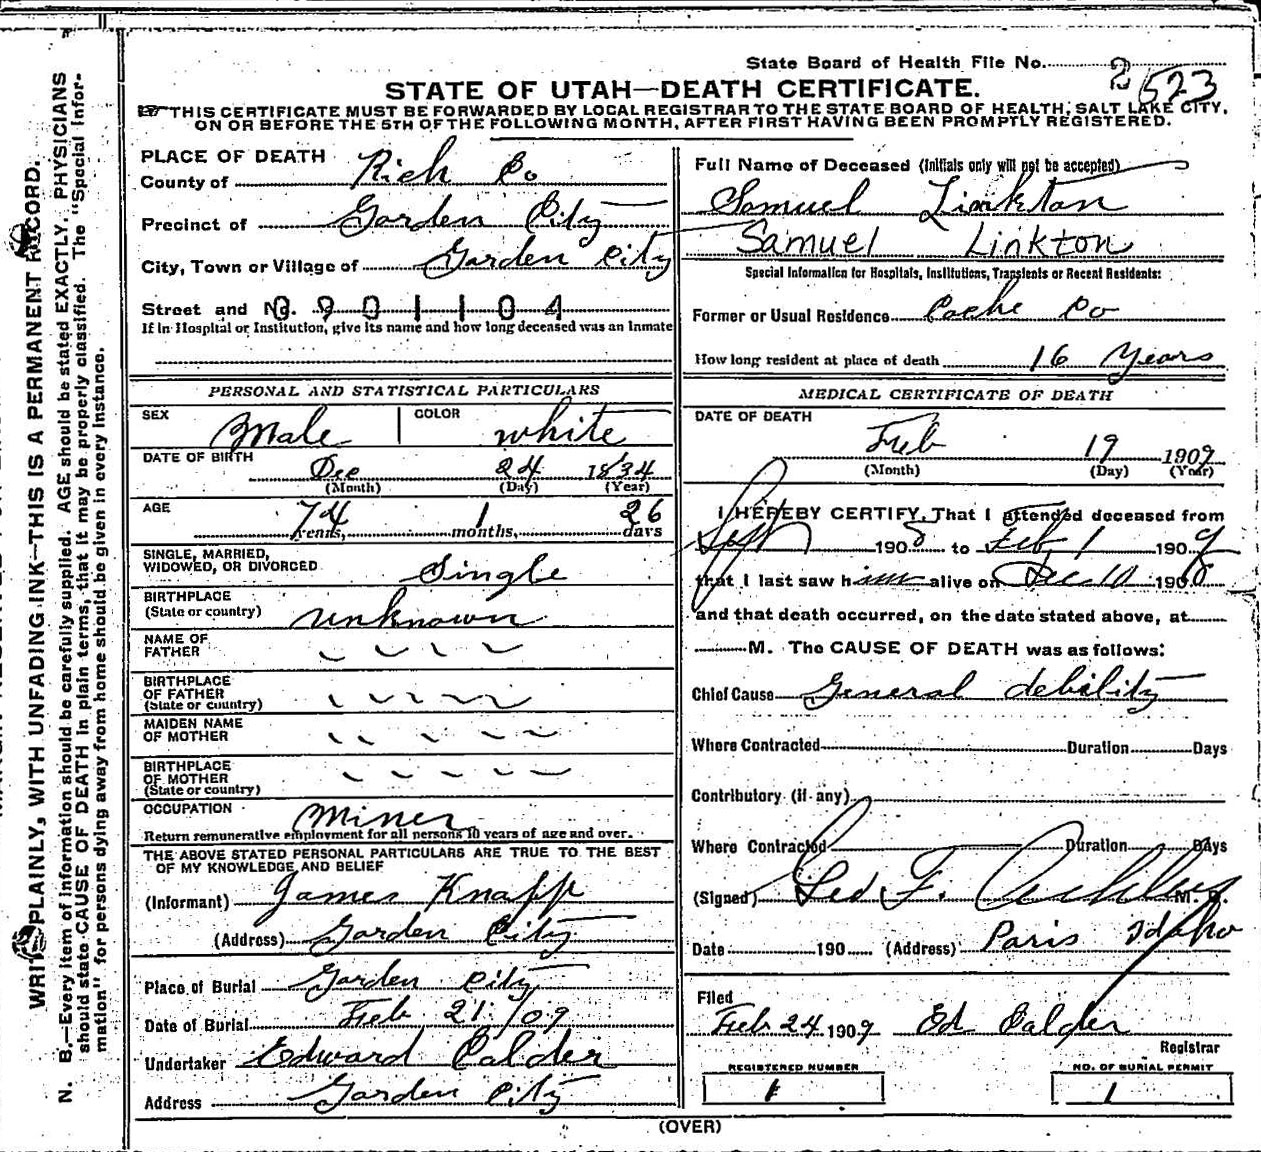 State Board of Health File No. 2523
STATE OF UTAH—DEATH CERTIFICATE.
THIS CERTIFICATE MUST BE FORWARDED BY LOCAL REGISTRAR TO THE STATE BOARD OF HEALTH, SALT LAKE CITY,
ON OR BEFORE THE 5TH OF THE FOLLOWING MONTH, AFTER FIRST HAVING BEEN PROMPTLY REGISTERED.
PLACE OF DEATH
County of Rich Co
Precinct of Garden City
City, Town or Village of Garden City
Street and No. 0901104
If in Hospital or Institution, give its name and how long deceased was an Inmate
PERSONAL AND STATISTICAL PARTICULARS
SEX Male COLOR white
DATE OF BIRTH Dec 24 1834
(Month) (Day) (Year)
AGE 74 years, 1 months, 26 days
SINGLE, MARRIED,
WIDOWED, OR DIVORCED Single
BIRTHPLACE
(State or country) unknown
NAME OF
FATHER
BIRTHPLACE
OF FATHER
(State or country)
MAIDEN NAME
OF MOTHER
BIRTHPLACE
OF MOTHER
(State or country)
OCCUPATION Miner
Return remunerative employment for all persons 10 years of age and over.
THE ABOVE STATED PERSONAL PARTICULARS ARE TRUE TO THE BEST
OF MY KNOWLEDGE AND BELIEF
(Informant) James Knapp
(Address) Garden City
Place of Burial Garden City
Date of Burial Feb 21 / 09
Undertaker Edward Calder
Address Garden City
Full Name of Deceased (Initials only will not be accepted)
Samuel Linkton
Samuel Linkton
Special Information for Hospitals, Institutions, Transients or Recent Residents:
Former or Usual Residence Cache Co
How long resident at place of death 16 Years
MEDICAL CERTIFICATE OF DEATH
DATE OF DEATH
Feb 19 1909
(Month) (Day) (Year)
I HEREBY CERTIFY, That I attended deceased from
Sept 1908 to Feb 1 1909
that I last saw him alive on Dec 10 1908
and that death occurred, on the date stated above, at
M. The CAUSE OF DEATH was as follows:
Chief Cause General debility
Where Contracted Duration Days
Contributory (if any)
Where Contracted Duration Days
(Signed) Geo F. Ashley M. D.
Date 190 (Address) Paris Idaho
Filed
Feb 24 1909 Ed Calder
Registrar
REGISTERED NUMBER
1
NO. OF BURIAL PERMIT
1
(OVER)
WRITE PLAINLY, WITH UNFADING INK—THIS IS A PERMANENT RECORD.
N. B.—Every item of information should be carefully supplied. AGE should be stated EXACTLY. PHYSICIANS
should state CAUSE OF DEATH in plain terms, that it may be properly classified. The "Special Infor-
mation" for persons dying away from home should be given in every instance.